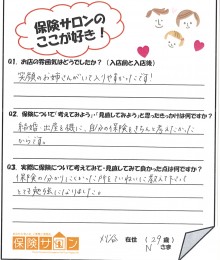 保険サロンの
ここが好き!
Q1. お店の雰囲気はどうでしたか?(入店前と入店後)
笑顔のお姉さんがいて入りやすかったです!
Q2. 保険について「考えてみよう」・「見直してみよう」と思ったきっかけは何ですか?
結婚・出産を機に、自分の保険をきちんと考えたかった
からです。
Q3. 実際に保険について考えてみて・見直してみて良かった点は何ですか?
保険の分かりにくかった所をていねいに教えて下さって
とても勉強になりました。
保険サロン
在住 (29歳)
N さま